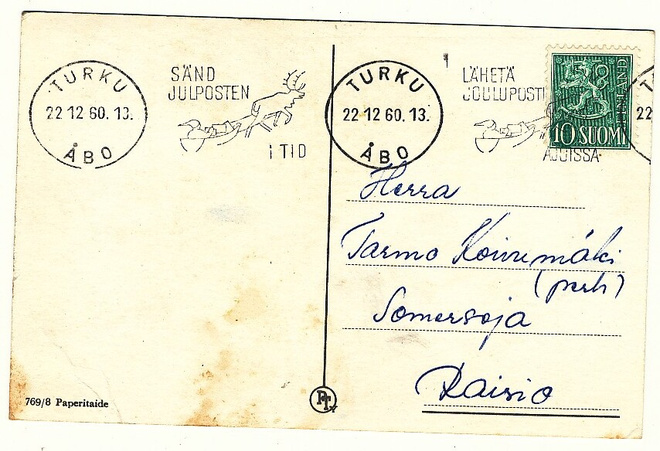 TURKU
22.12.60.13.
ÅBO
SÄND
JULPOSTEN
i TID
TURKU
22.12.60.13.
ÅBO
LÄHETÄ
JOULUPOSTI
AJOISSA
FINLAND
10 SUOMI
22
Herra
Tarmo Koivumäki
(perh)
Somersoja
Raisio
769/8 Paperitaide
PT